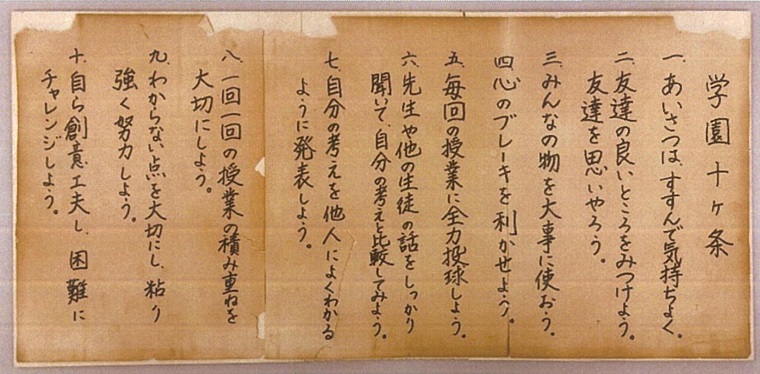 学園十ヶ条
一、あいさつは、すすんで気持ちよく。
二、友達の良いところをみつけよう。
友達を思いやろう。
三、みんなの物を大事に使おう。
四、心のブレーキを利かせよう。
五、毎回の授業に全力投球しよう。
六、先生や他の生徒の話をしっかり
聞いて、自分の考えと比較してみよう。
七、自分の考えを他人によくわかる
ように発表しよう。
八、一回一回の授業の積み重ねを
大切にしよう。
九、わからない点を大切にし、粘り
強く努力しよう。
十、自ら創意工夫し、困難に
チャレンジしよう。